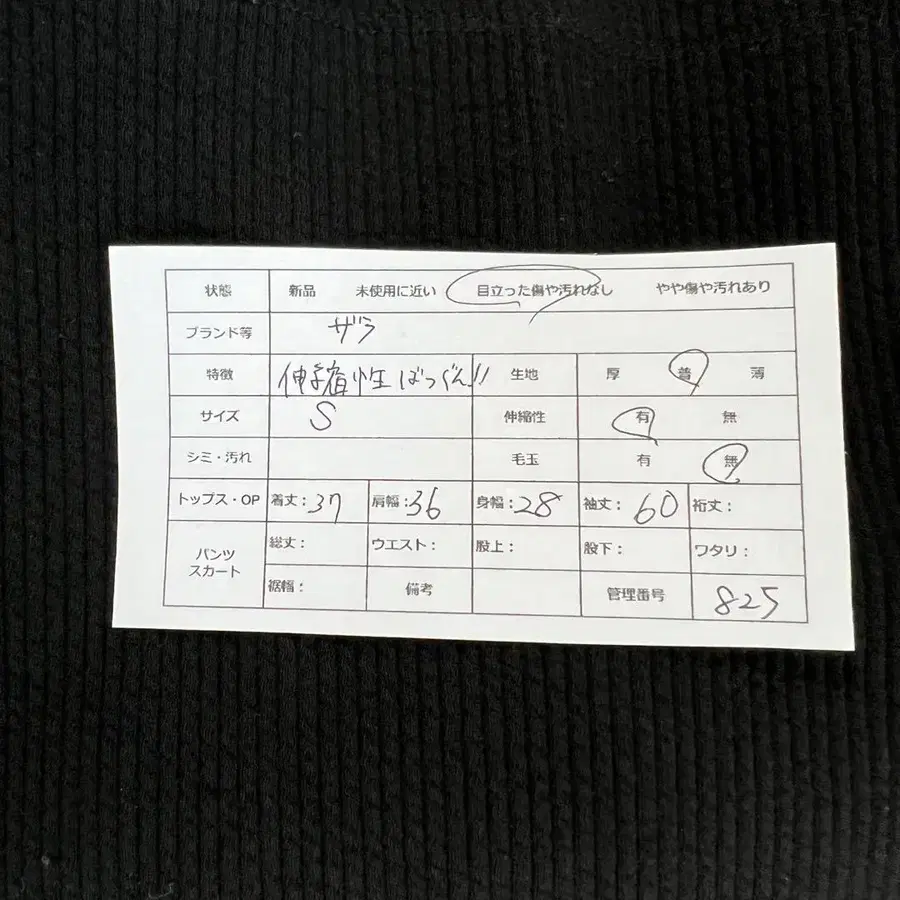 状態 新品 未使用に近い 目立った傷や汚れなし やや傷や汚れあり
ブランド等 ザラ
特徴 伸縮性ばつぐん!! 生地 厚 普 薄
サイズ S 伸縮性 有 無
シミ・汚れ 毛玉 有 無
トップス・OP 着丈:37 肩幅:36 身幅:28 袖丈:60 裄丈:
パンツ スカート
総丈: ウエスト: 股上: 股下: ワタリ:
裾幅: 備考 管理番号 825